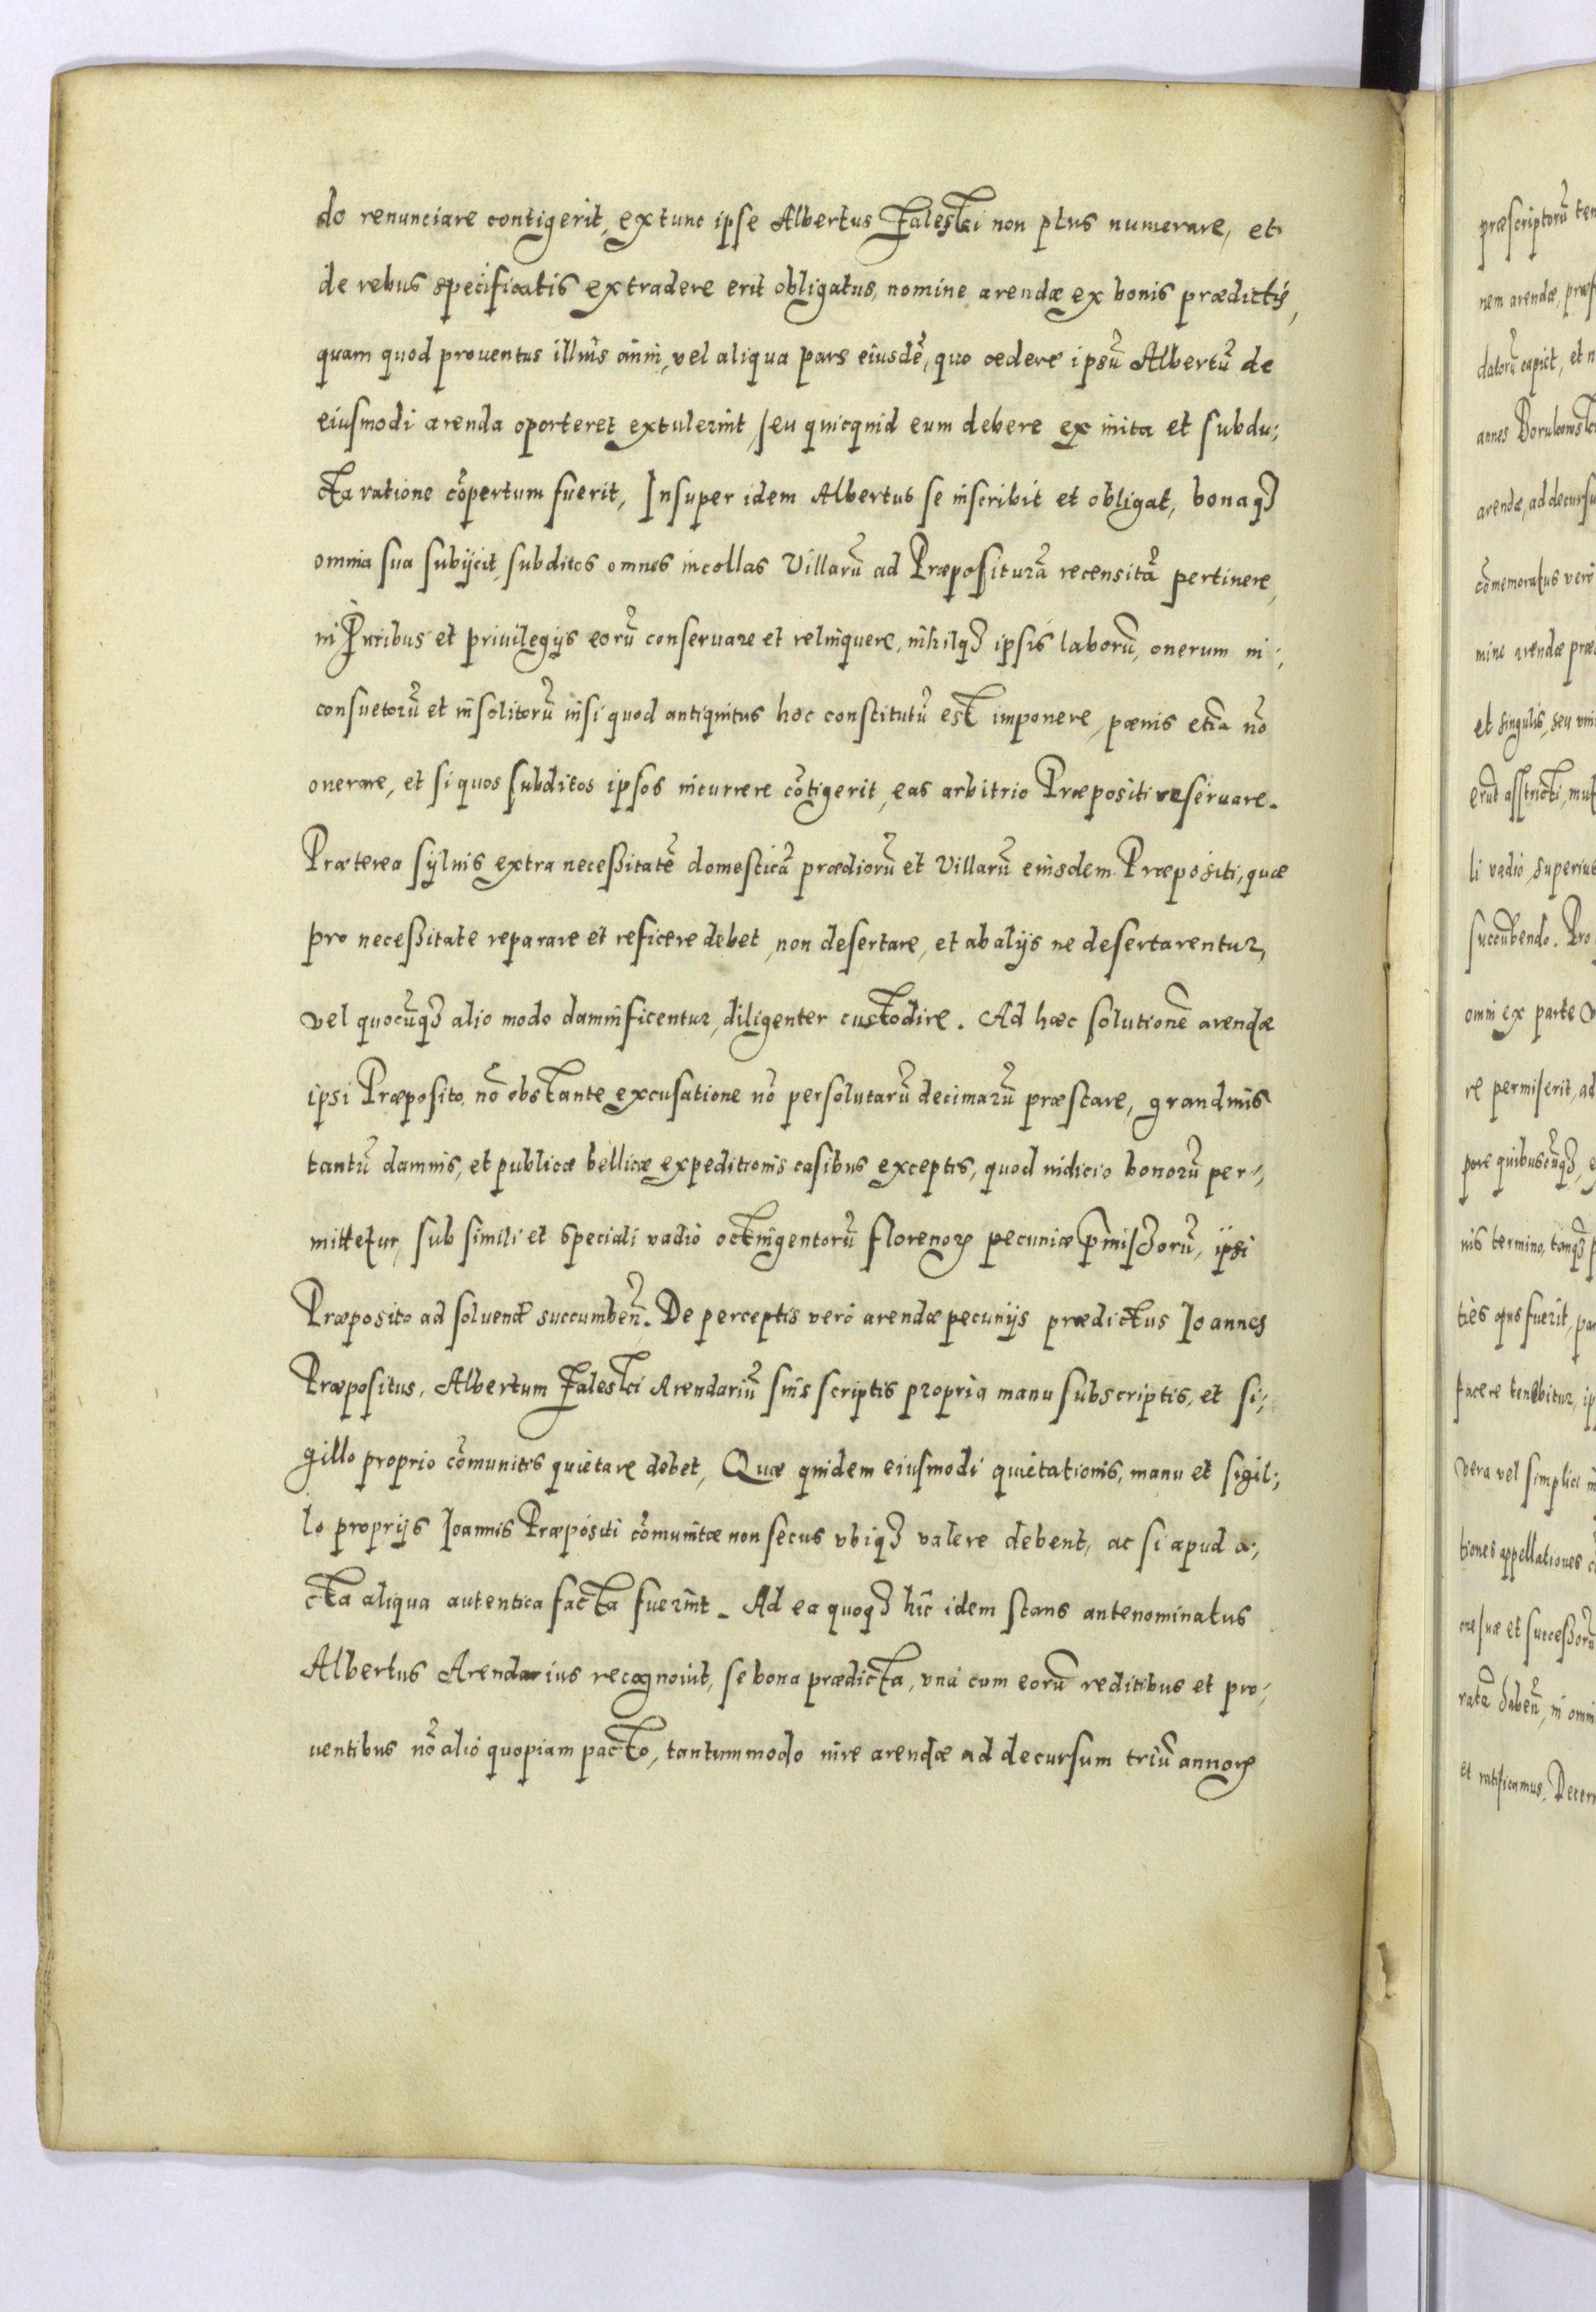 do renunciare contigerit, extunc ipse Albertus Zaleski non plus numerare, et
de rebus specificatis extradere erit obligatus, nomine arendæ ex bonis prædictis,
quam quod prouentus illius anni, vel aliqua pars eiusdē, quo cedere ipsū Albertū de
eiusmodi arenda oporteret extulerint, seu quicquid eum debere ex inita et subdu;
cta ratione cōpertum fuerit, Insuper idem Albertus se inscribit et obligat, bonaqȝ
omnia sua subijcit, subditos omnes incollas Villarū ad Præpositurā recensitā pertinere,
in Iuribus et priuilegijs eorū conseruare et relinquere, nihilqȝ ipsis laborū, onerum in;
consuetorū et insolitorū nisi quod antiquitus hoc constitutū est imponere, pœnis etiā nō
onerare, et si quos subditos ipsos incurrere cōtigerit, eas arbitrio Præpositi reseruare.
Præterea syluis extra neceßitatē domesticā prædiorū et Villarū eiusdem Præpositi, quæ
pro neceßitate reparare et reficere debet, non desertare, et ab alijs ne desertarentur,
vel quocūqȝ alio modo damnificentur, diligenter custodire. Ad hæc solutionē arendæ
ipsi Præposito, nō obstante excusatione nō persolutarū decimarū præstare, grandinis
tantū damnis, et publicæ bellicæ expeditionis casibus exceptis, quod iudicio bonorū per;
mittetur, sub simili et speciali vadio octingentorū florenoꝝ pecuniæ p̄missorū, ipsi
Præposito ad soluend succumbeñ. De perceptis verò arendæ pecunijs prædictus Ioannes
Præpositus, Albertum Zaleski Arendariū suis scriptis propria manu subscriptis, et si;
gillo proprio cōmunitis quietare debet, Quæ quidem eiusmodi quietationis, manu et sigil;
lo proprijs Ioannis Præpositi cōmunitæ non secus vbiqȝ valere debent, ac si apud a;
cta aliqua autentica facta fuerint. Ad ea quoqȝ hic idem stans antenominatus
Albertus Arendarius recognouit, se bona prædicta, vnà cum eorū reditibus et pro;
uentibus nō alio quopiam pacto, tantummodo iure arendæ ad decursum triū annoꝝ